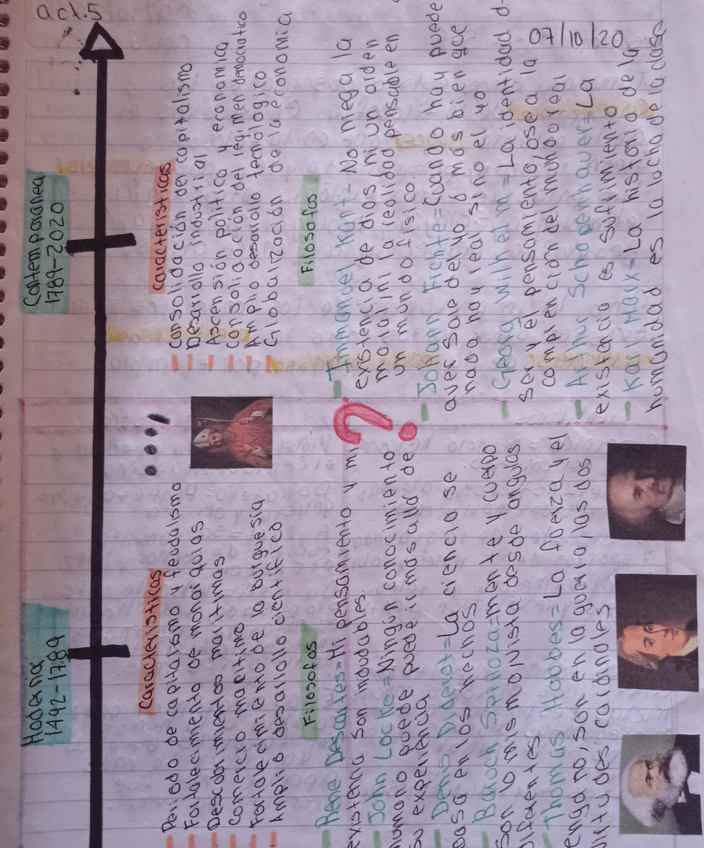 act.5
07/10/20
Moderna
1492-1789
Caracteristicas
Periodo de capitalismo y feudalismo
Fortalecimiento de monarquias
Descubrimientos maritimas
Comercio maritimo
Fortalecimiento de la burguesia
Amplio desarrollo cientifico
Filosofos
Rene Descartes= Mi pensamiento y mi
existencia son indudables.
John Locke= Ningún conocimiento
humano puede puede ir más allá de
su experiencia
Denis Diderot= La ciencia se
basa en los hechos
Baruch Spinoza= mente y cuerpo
son lo mismo, vista desde angulos
diferentes
Thomas Hobbes= La fuerza y el
engaño, son en la guerra, las dos
virtudes cardinales
?
Contemporanea
1789-2020
Caracteristicas
Consolidación del capitalismo
Desarrollo industrial
Ascensión politica y economica
Consolidación del régimen democratico
Amplio desarrollo tecnologico
Globalización de la economia
Filosofos
Immanuel Kant- No niega la
existencia de dios, ni un orden
moral, ni la realidad pensable en
un mundo fisico
Johann Fichte= Cuando hay puede
aver sale del yo, ó más bien que
nada hay real sino el yo
Georg Wilhelm= La identidad d
ser y el pensamiento osea la
comprención del mundo real
Arthur Schopenhauer= La
existencia es sufrimiento
Karl Marx= La historia de la
humanidad es la lucha de la clase